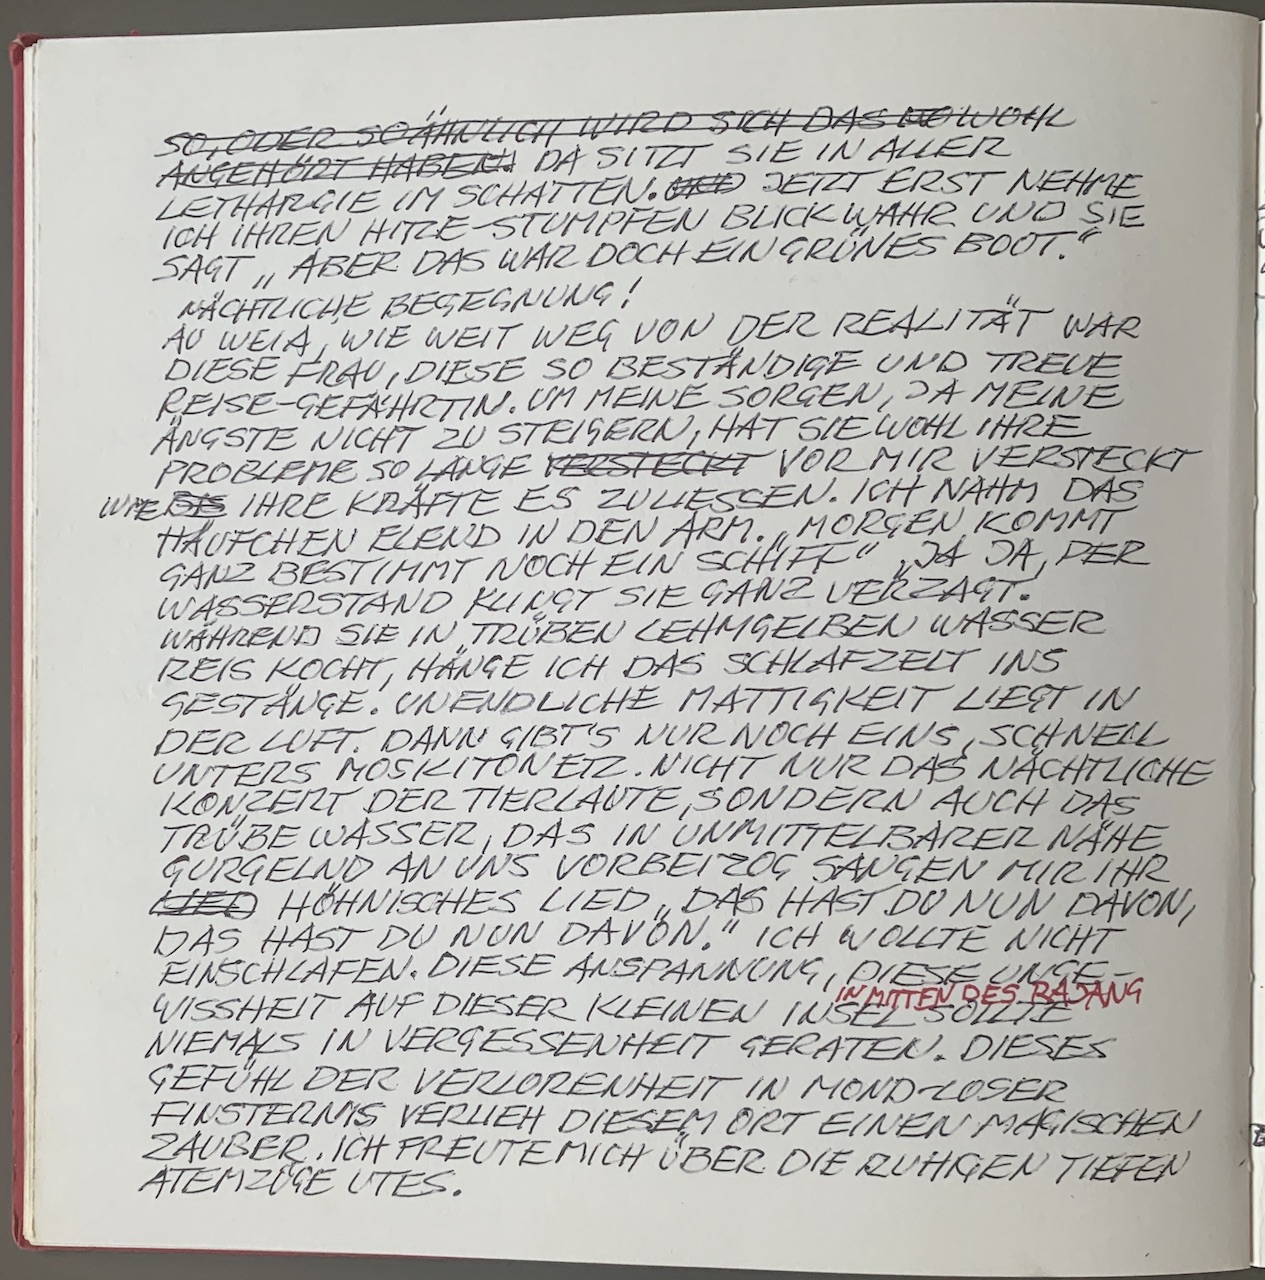 SO, ODER SO ÄHNLICH WIRD SICH DAS WOHL
ANGEHÖRT HABEN. DA SITZT SIE IN ALLER
LETHARGIE IM SCHATTEN. UND JETZT ERST NEHME
ICH IHREN HITZE-STUMPFEN BLICK WAHR UND SIE
SAGT „ABER DAS WAR DOCH EIN GRÜNES BOOT.“
NÄCHTLICHE BEGEGNUNG!
AU WEIA, WIE WEIT WEG VON DER REALITÄT WAR
DIESE FRAU, DIESE SO BESTÄNDIGE UND TREUE
REISE-GEFÄHRTIN. UM MEINE SORGEN, JA MEINE
ÄNGSTE NICHT ZU STEIGERN, HAT SIE WOHL IHRE
PROBLEME SO LANGE VERSTECKT VOR MIR VERSTECKT
WIE BIS IHRE KRÄFTE ES ZULIESSEN. ICH NAHM DAS
HÄUFCHEN ELEND IN DEN ARM. „MORGEN KOMMT
GANZ BESTIMMT NOCH EIN SCHIFF“ „JA JA, DER
WASSERSTAND KLINGT SIE GANZ VERZAGT.
WÄHREND SIE IN TRÜBEN LEHMGELBEN WASSER
REIS KOCHT, HÄNGE ICH DAS SCHLAFZELT INS
GESTÄNGE. UNENDLICHE MATTIGKEIT LIEGT IN
DER LUFT. DANN GIBT'S NUR NOCH EINS, SCHNELL
UNTERS MOSKITONETZ. NICHT NUR DAS NÄCHTLICHE
KONZERT DER TIERLAUTE, SONDERN AUCH DAS
TRÜBE WASSER, DAS IN UNMITTELBARER NÄHE
GURGELND AN UNS VORBEIZOG SANGEN MIR IHR
LIED HÖHNISCHES LIED „DAS HAST DU NUN DAVON,
DAS HAST DU NUN DAVON.“ ICH WOLLTE NICHT
EINSCHLAFEN. DIESE ANSPANNUNG, DIESE UNGE-
IN MITTEN DES RAJANG
WISSHEIT AUF DIESER KLEINEN INSEL SOLLTE
NIEMALS IN VERGESSENHEIT GERATEN. DIESES
GEFÜHL DER VERLORENHEIT IN MOND-LOSER
FINSTERNIS VERLIEH DIESEM ORT EINEN MAGISCHEN
ZAUBER. ICH FREUTE MICH ÜBER DIE RUHIGEN TIEFEN
ATEMZÜGE UTES.